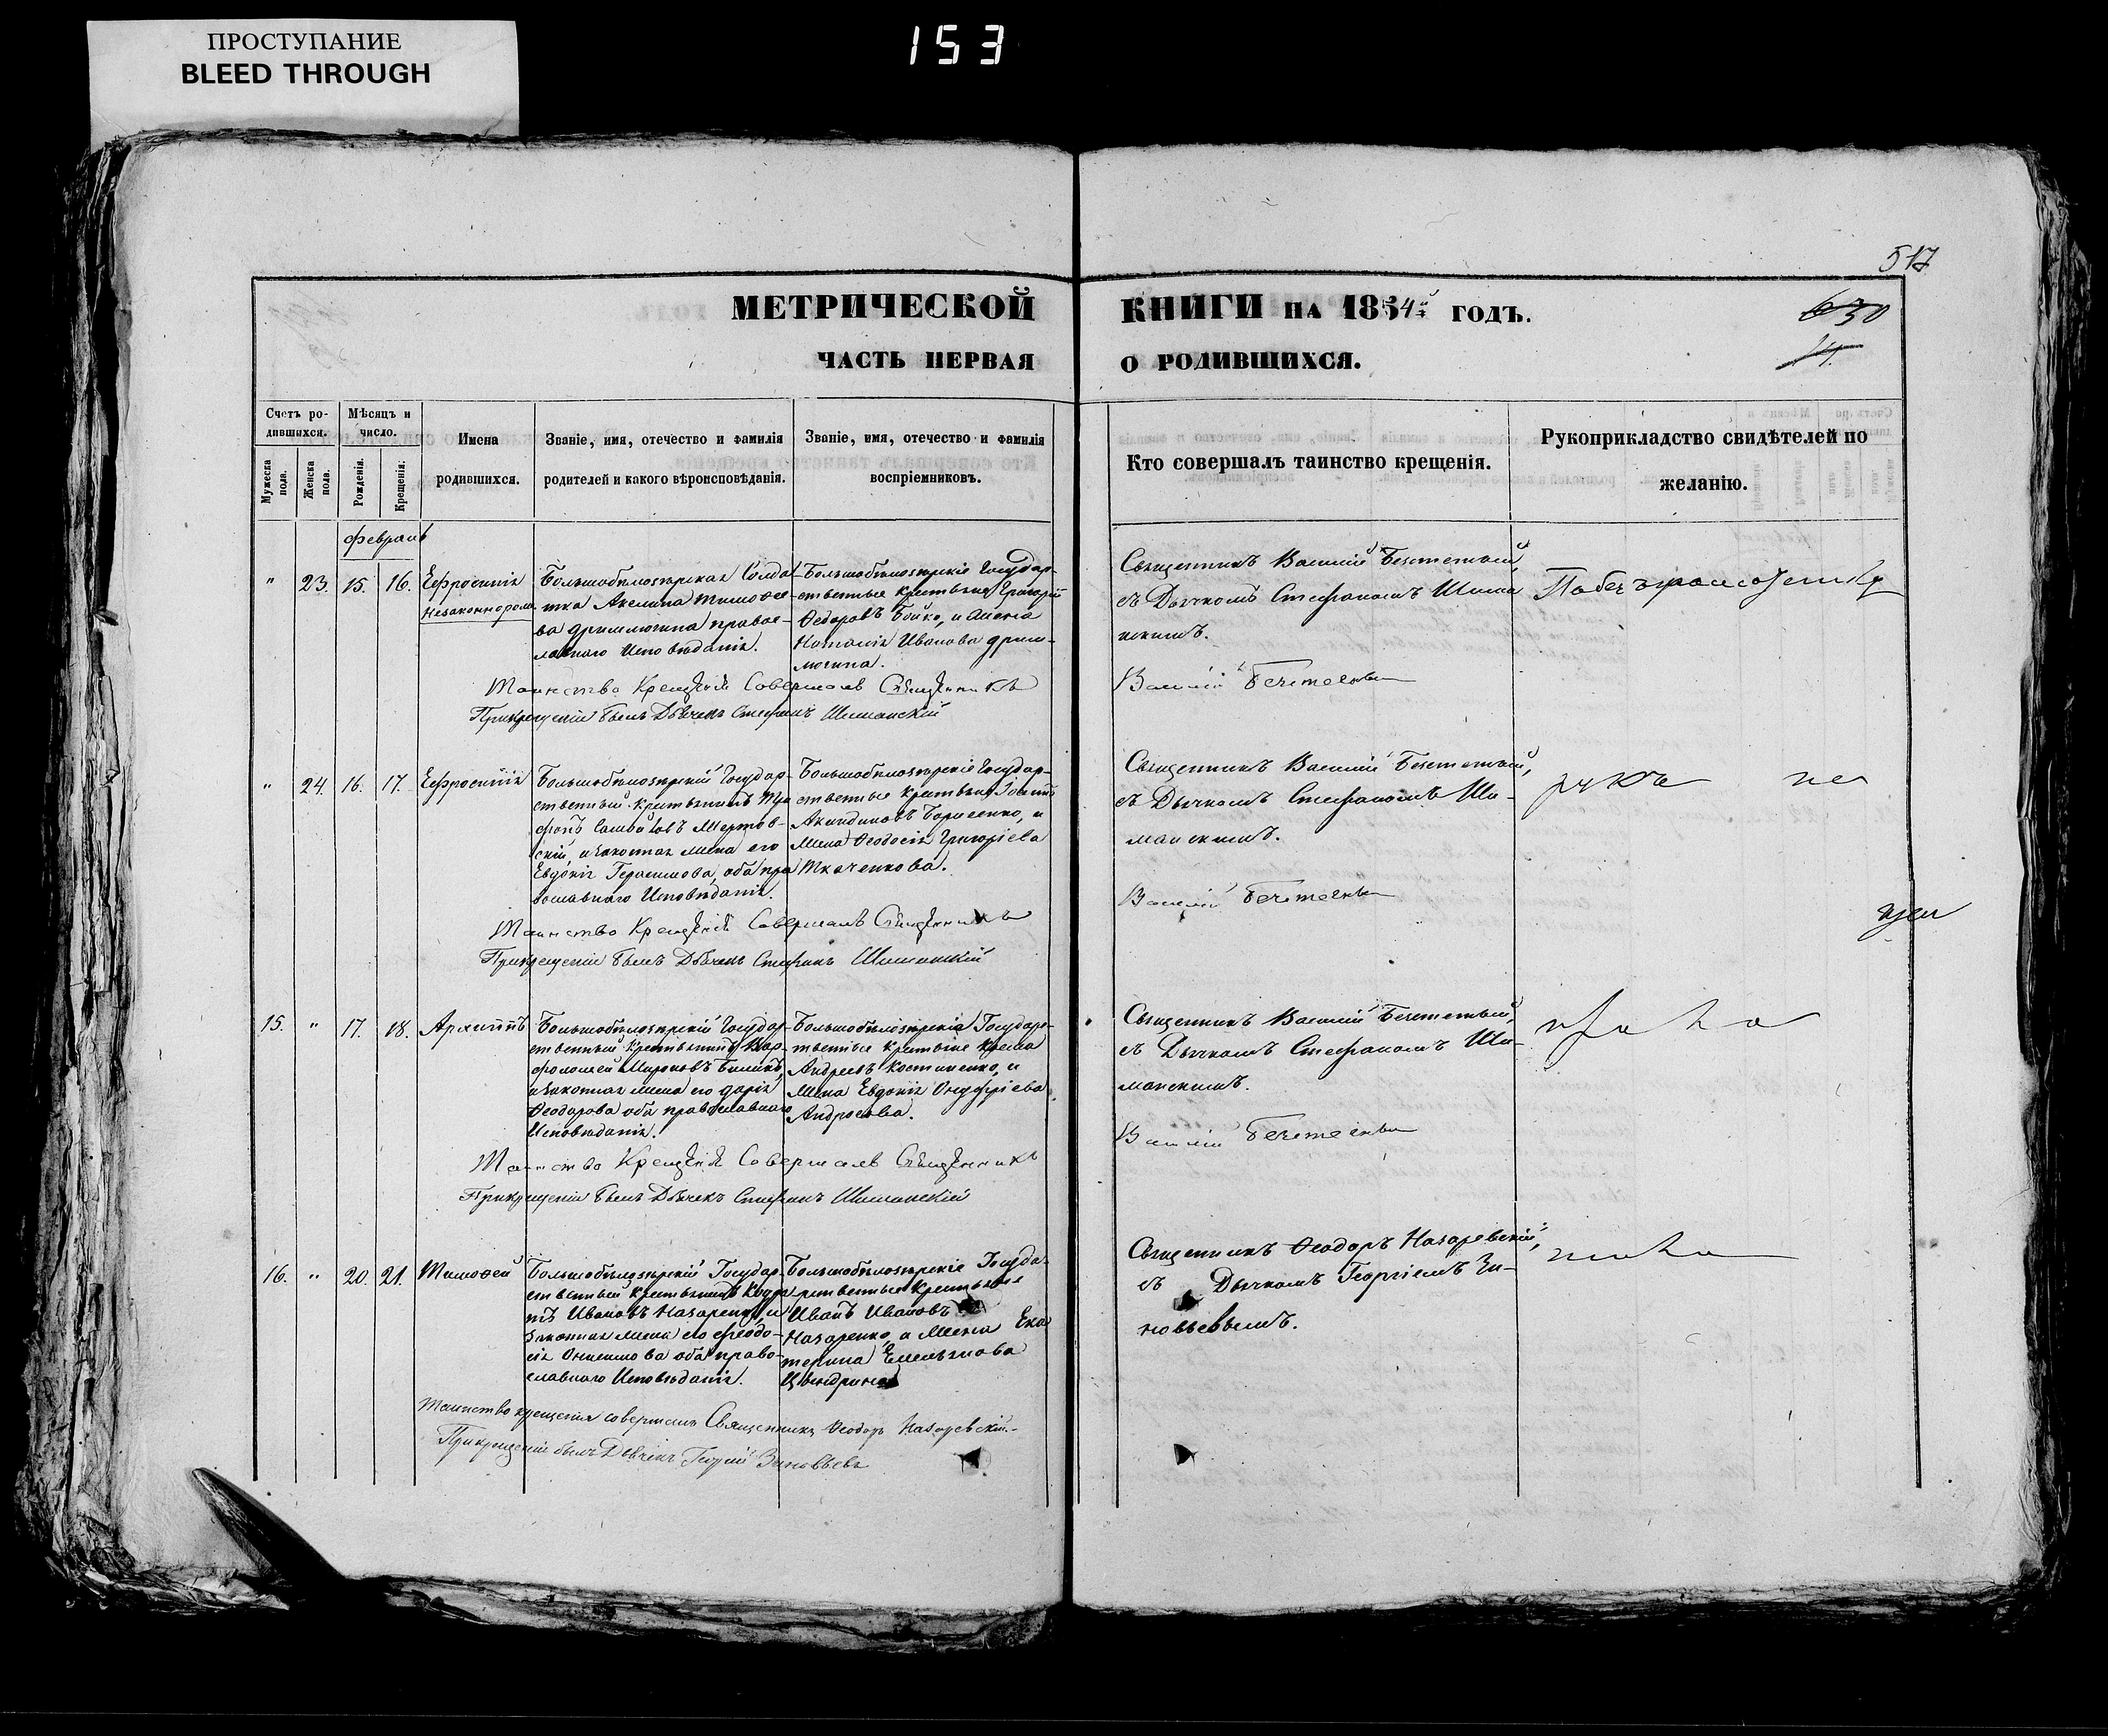 ПРОСТУПАНИЕ
BLEED THROUGH
153
517
МЕТРИЧЕСКОЙ КНИГИ НА 1854й ГОДЪ.
630
14.
ЧАСТЬ ПЕРВАЯ О РОДИВШИХСЯ.
Счетъ ро-
дившихся.
Мужеска пола.
Женска пола.
Мѣсяцъ и
число.
Рожденія.
Крещенія.
Имена
родившихся.
Званіе, имя, отечество и фамилія
родителей и какого вѣроисповѣданія.
Званіе, имя, отечество и фамилія
воспріемниковъ.
Кто совершалъ таинство крещенія.
Рукоприкладство свидѣтелей по
желанію.
Февраль
" 23. 15. 16. Ефросинія
незаконнорожд.
Большобѣлозѣрская Солда-
тка Акелина Тимофее-
ва
правос-
лавнаго Исповѣданія.
Большобѣлозѣрскіе Государ-
ственные крестьяне Григорій
Ѳедоровъ Бойко, и жена
Наталія Иванова
Священникъ Василій
съ Дьячкомъ Стефаномъ Шиман-
скимъ.
Василій
Таинство Крещенія Совершалъ Священникъ
При крещеніи былъ Дьячекъ Стефанъ Шиманскій
" 24. 16. 17. Ефросинія
Большобѣлозѣрскій Государ-
ственный крестьянинъ Три-
фонъ
и законная жена его
Евдокія Герасимова, оба пра-
вославнаго Исповѣданія.
Большобѣлозѣрскіе Государ-
ственные крестьяне
Борисенко, и
жена Ѳеодосія Григоріева
Ткаченкова.
Священникъ Василій
съ Дьячкомъ Стефаномъ Ши-
манскимъ.
Василій
не
Таинство Крещенія Совершалъ Священникъ
При крещеніи былъ Дьячекъ Стефанъ Шиманскій
15. " 17. 18. Архиппъ
Большобѣлозѣрскій Государ-
ственный крестьянинъ Вар-
фоломей Мироновъ Билыкъ,
и законная жена его Дарія
Ѳеодорова оба православнаго
Исповѣданія.
Большобѣлозѣрскіе Государс-
твенные крестьяне
Андреевъ Костиненко, и
жена Евдокія Онуфріева
Андросова.
Священникъ Василій
съ Дьячкомъ Стефаномъ Ши-
манскимъ.
Василій
Таинство Крещенія Совершалъ Священникъ
При крещеніи былъ Дьячекъ Стефанъ Шиманскій
16. " 20. 21. Тимофей
Большобѣлозѣрскій Государ-
ственный крестьянинъ
Ивановъ Назаренко, и
законная жена его Феодо-
сія Онисимова оба право-
славнаго Исповѣданія.
Большобѣлозѣрскіе Госуда-
рственные крестьяне
Иванъ Ивановъ
Назаренко, и жена Ека-
терина Емельянова
Священникъ Ѳеодоръ Назаревскій,
съ Дьячкомъ Георгіемъ Зи-
новьевымъ.
Таинство крещенія совершалъ Священникъ Ѳеодоръ Назаревскій.
При крещеніи былъ Дьячекъ Георгій Зиновьевъ